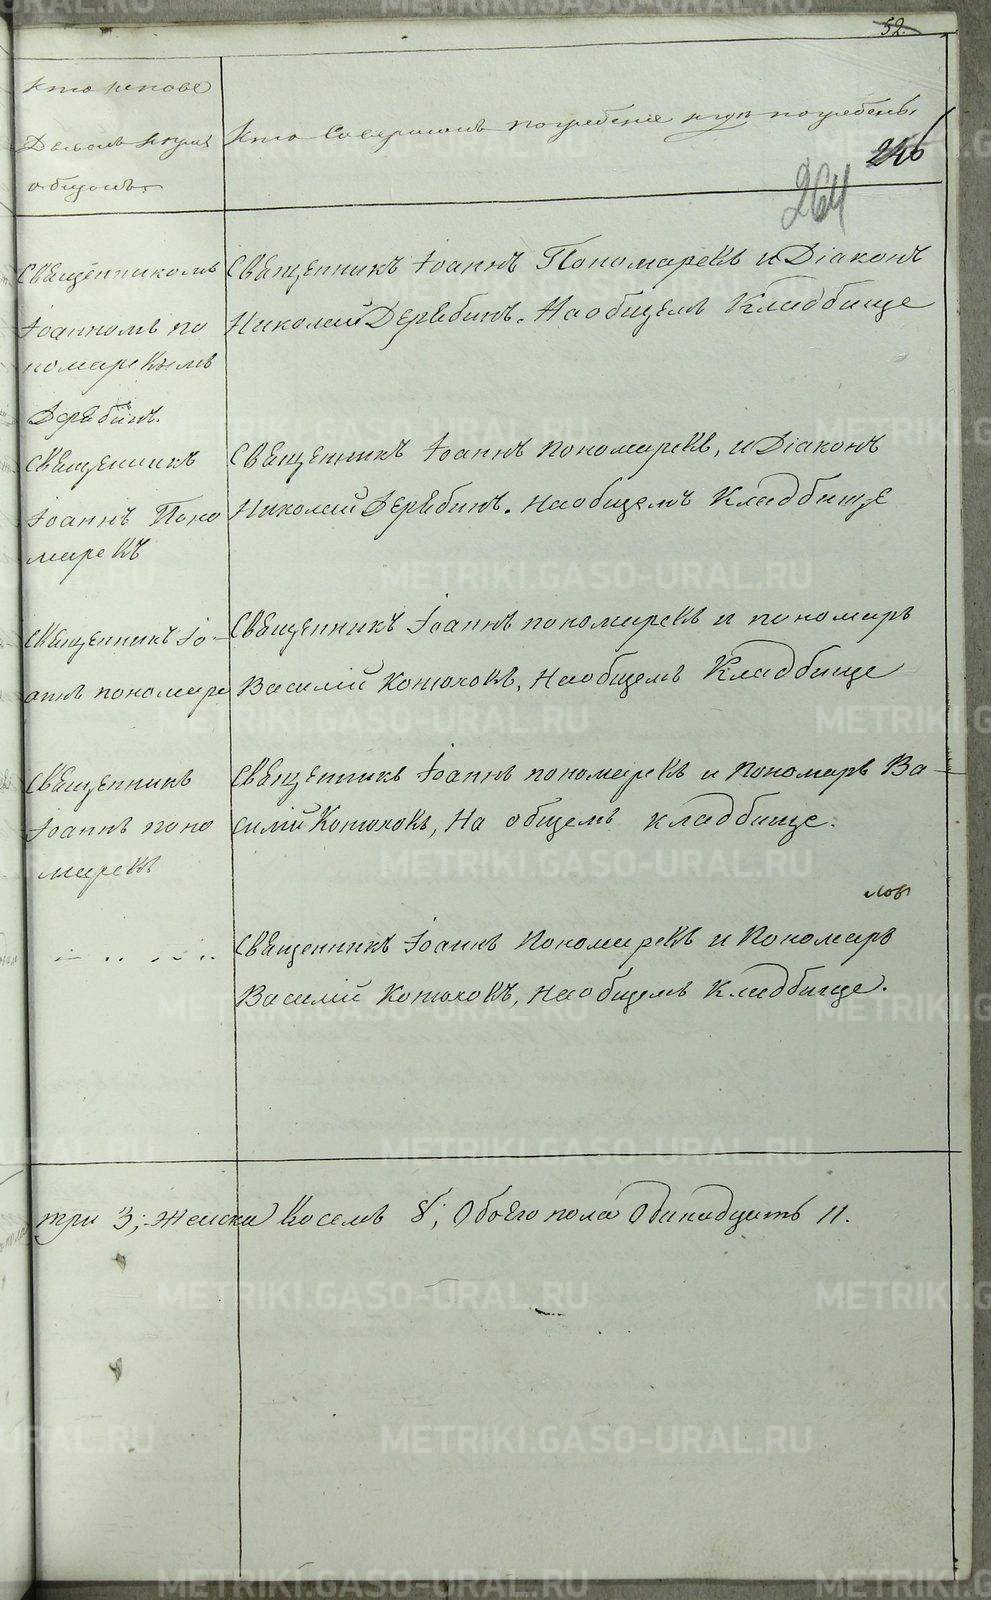 52.
кто испове
довалъ и прі
общалъ.
Кто совершалъ погребеніе и гдѣ погребены.
246
264
Священникомъ
Іоанномъ По
номаревымъ
Дерябинъ.
Священникъ Іоаннъ Пономаревъ и Діаконъ
Николай Дерябинъ. На общемъ Кладбище
Священникъ
Іоаннъ Поно
маревъ
Священникъ Іоаннъ Пономаревъ, и Діаконъ
Николай Дерябинъ. На общемъ Кладбище
Священникъ Іо-
аннъ Пономаре
Священникъ Іоаннъ Пономаревъ и пономарь
Василій Конюховъ, На общемъ Кладбище
Священникъ
Іоаннъ поно
маревъ
Священникъ Іоаннъ пономаревъ и Пономарь Ва-
силій Конюховъ, На общемъ кладбище.
лов
Священникъ Іоаннъ Пономаревъ и Пономарь
Василій Конюховъ, На общемъ Кладбище.
три 3; Женска Восемь 8; Обоего пола Одинадцать 11.
METRIKI.GASO-URAL.RU